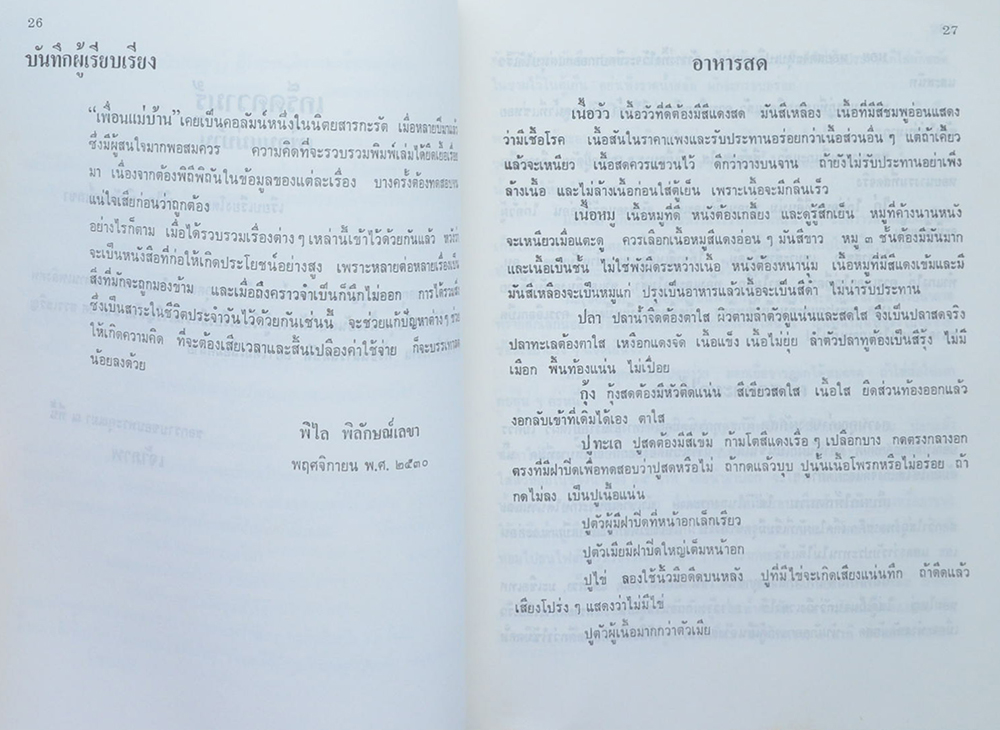 26
บันทึกผู้เรียบเรียง
“เพื่อนแม่บ้าน” เคยเป็นคอลัมน์หนึ่งในนิตยสารกะรัต เมื่อหลายปีมาแล้ว
ซึ่งมีผู้สนใจมากพอสมควร ความคิดที่จะรวบรวมพิมพ์เล่มได้ยืดเยื้อเรื่อย
มา เนื่องจากต้องพิถีพิถันในข้อมูลของแต่ละเรื่อง บางครั้งต้องทดสอบจน
แน่ใจเสียก่อนว่าถูกต้อง
อย่างไรก็ตาม เมื่อได้รวบรวมเรื่องต่าง ๆ เหล่านี้เข้าไว้ด้วยกันแล้ว หวังว่า
จะเป็นหนังสือที่ก่อให้เกิดประโยชน์อย่างสูง เพราะหลายต่อหลายเรื่องเป็น
สิ่งที่มักจะถูกมองข้าม และเมื่อถึงคราวจำเป็นก็นึกไม่ออก การได้รวมสิ่ง
ซึ่งเป็นสาระในชีวิตประจำวันไว้ด้วยกันเช่นนี้ จะช่วยแก้ปัญหาต่าง ๆ ช่วย
ให้เกิดความคิด ที่จะต้องเสียเวลาและสิ้นเปลืองค่าใช้จ่าย ก็จะบรรเทาลด
น้อยลงด้วย
พิไล พิลักษณ์เลขา
พฤศจิกายน พ.ศ. ๒๕๓๐
27
อาหารสด
เนื้อวัว เนื้อวัวที่ดีต้องมีสีแดงสด มันสีเหลือง เนื้อที่มีสีชมพูอ่อนแสดง
ว่ามีเชื้อโรค เนื้อสันในราคาแพงและรับประทานอร่อยกว่าเนื้อส่วนอื่น ๆ แต่ถ้าเคี้ยว
แล้วจะเหนียว เนื้อสดควรแขวนไว้ ดีกว่าวางบนจาน ถ้ายังไม่รับประทานอย่าเพิ่ง
ล้างเนื้อ และไม่ล้างเนื้อก่อนใส่ตู้เย็น เพราะเนื้อจะมีกลิ่นเร็ว
เนื้อหมู เนื้อหมูที่ดี หนังต้องเกลี้ยง และดูรู้สึกเย็น หมูที่ค้างนานหนัง
จะเหนียวเมื่อแตะดู ควรเลือกเนื้อหมูสีแดงอ่อน ๆ มันสีขาว หมู ๓ ชั้นต้องมีมันมาก
และเนื้อเป็นชั้น ไม่ใช่พังผืดระหว่างเนื้อ หนังต้องหนานุ่ม เนื้อหมูที่มีสีแดงเข้มและมี
มันสีเหลืองจะเป็นหมูแก่ ปรุงเป็นอาหารแล้วเนื้อจะเป็นสีดำ ไม่น่ารับประทาน
ปลา ปลาน้ำจืดต้องตาใส ผิวตามลำตัวดูแน่นและสดใส จึงเป็นปลาสดจริง
ปลาทะเลต้องตาใส เหงือกแดงจัด เนื้อแข็ง เนื้อไม่ยุ่ย ลำตัวปลาทูต้องเป็นสีรุ้ง ไม่มี
เมือก พื้นท้องแน่น ไม่เปื่อย
กุ้ง กุ้งสดต้องมีหัวติดแน่น สีเขียวสดใส เนื้อใส ยืดส่วนท้องออกแล้ว
งอกลับเข้าที่เดิมได้เอง ตาใส
ปูทะเล ปูสดต้องมีสีเข้ม ก้ามโตสีแดงเรื่อ ๆ เปลือกบาง กดตรงกลางอก
ตรงที่มีฝาปิดเพื่อทดสอบว่าปูสดหรือไม่ ถ้ากดแล้วบุบ ปูนั้นเนื้อโพรกหรือไม่อร่อย ถ้า
กดไม่ลง เป็นปูเนื้อแน่น
ปูตัวผู้มีฝาปิดที่หน้าอกเล็กเรียว
ปูตัวเมียมีฝาปิดใหญ่เต็มหน้าอก
ปูไข่ ลองใช้นิ้วมือดีดบนหลัง ปูที่มีไข่จะเกิดเสียงแน่นทึก ถ้าดีดแล้ว
เสียงโปร่ง ๆ แสดงว่าไม่มีไข่
ปูตัวผู้เนื้อมากกว่าตัวเมีย